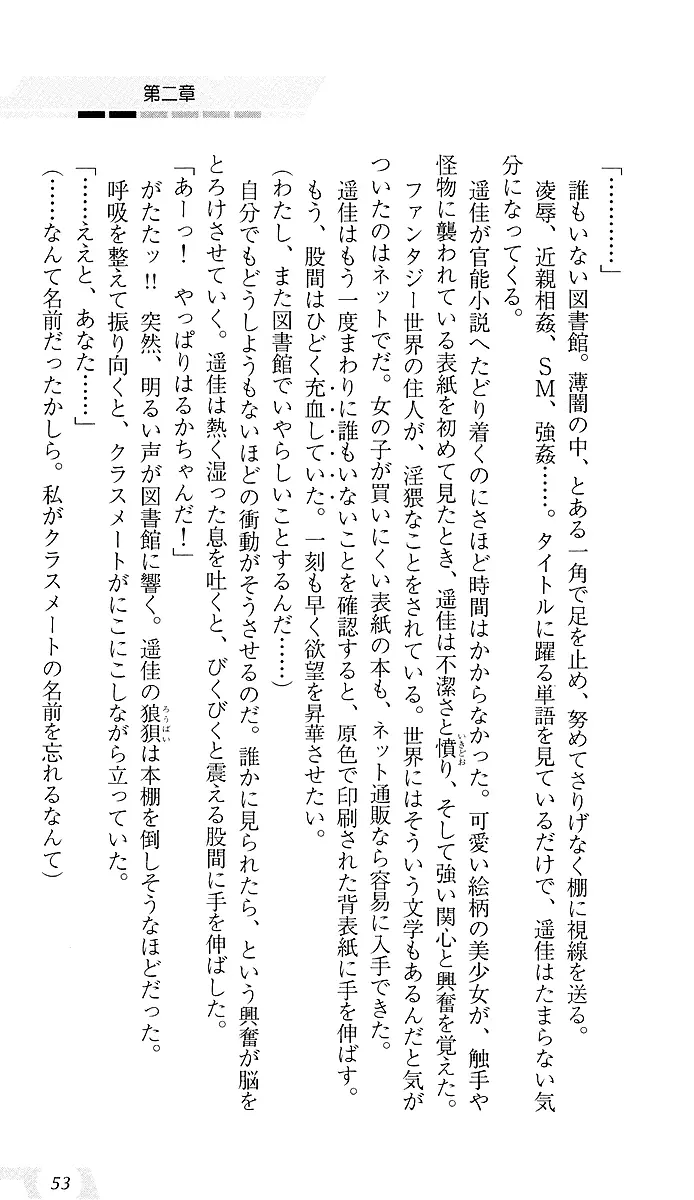 第二章
「…………」
誰もいない図書館。薄闇の中、とある一角で足を止め、努めてさりげなく棚に視線を送る。
凌辱、近親相姦、ＳＭ、強姦……。タイトルに躍る単語を見ているだけで、遥佳はたまらない気
分になってくる。
遥佳が官能小説へたどり着くのにさほど時間はかからなかった。可愛い絵柄の美少女が、触手や
怪物に襲われている表紙を初めて見たとき、遥佳は不潔さと憤り、そして強い関心と興奮を覚えた。
いきどお
ファンタジー世界の住人が、淫猥なことをされている。世界にはそういう文学もあるんだと気が
ついたのはネットでだ。女の子が買いにくい表紙の本も、ネット通販なら容易に入手できた。
遥佳はもう一度まわりに誰もいないことを確認すると、原色で印刷された背表紙に手を伸ばす。
もう、股間はひどく充血していた。一刻も早く欲望を昇華させたい。
(わたし、また図書館でいやらしいことするんだ……)
自分でもどうしようもないほどの衝動がそうさせるのだ。誰かに見られたら、という興奮が脳を
とろけさせていく。遥佳は熱く湿った息を吐くと、びくびくと震える股間に手を伸ばした。
「あーっ！　やっぱりはるかちゃんだ！」
がたたッ!!　突然、明るい声が図書館に響く。遥佳の狼狽は本棚を倒しそうなほどだった。
ろうばい
呼吸を整えて振り向くと、クラスメートがにこにこしながら立っていた。
「……ええと、あなた……」
(……なんて名前だったかしら。私がクラスメートの名前を忘れるなんて)
53